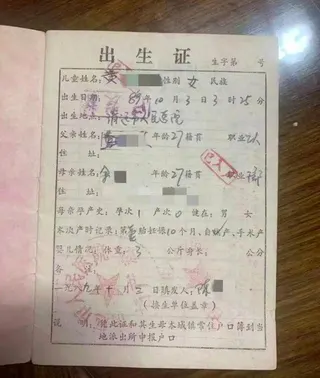 出生证
生字第 号
儿童姓名: 黄 性别 女 民族
出生日期: 89年10月3日3时25分
出生地点: 医院
父亲姓名: 年龄27籍贯 职业
住址:
母亲姓名: 年龄27籍贯 职业
住址:
母亲孕产史: 孕次1 产次0 现在: 男 女
本次产时记录: 第 胎妊娠10个月、自然产、手术产
婴儿情况: 体重: 3 公斤身长: 公分
各
一九八九年十月三日填发人: 陈
(接生单位盖章)
说明: 凭此证和其生母本城镇常住户口簿到当
地派出所申报户口
已入